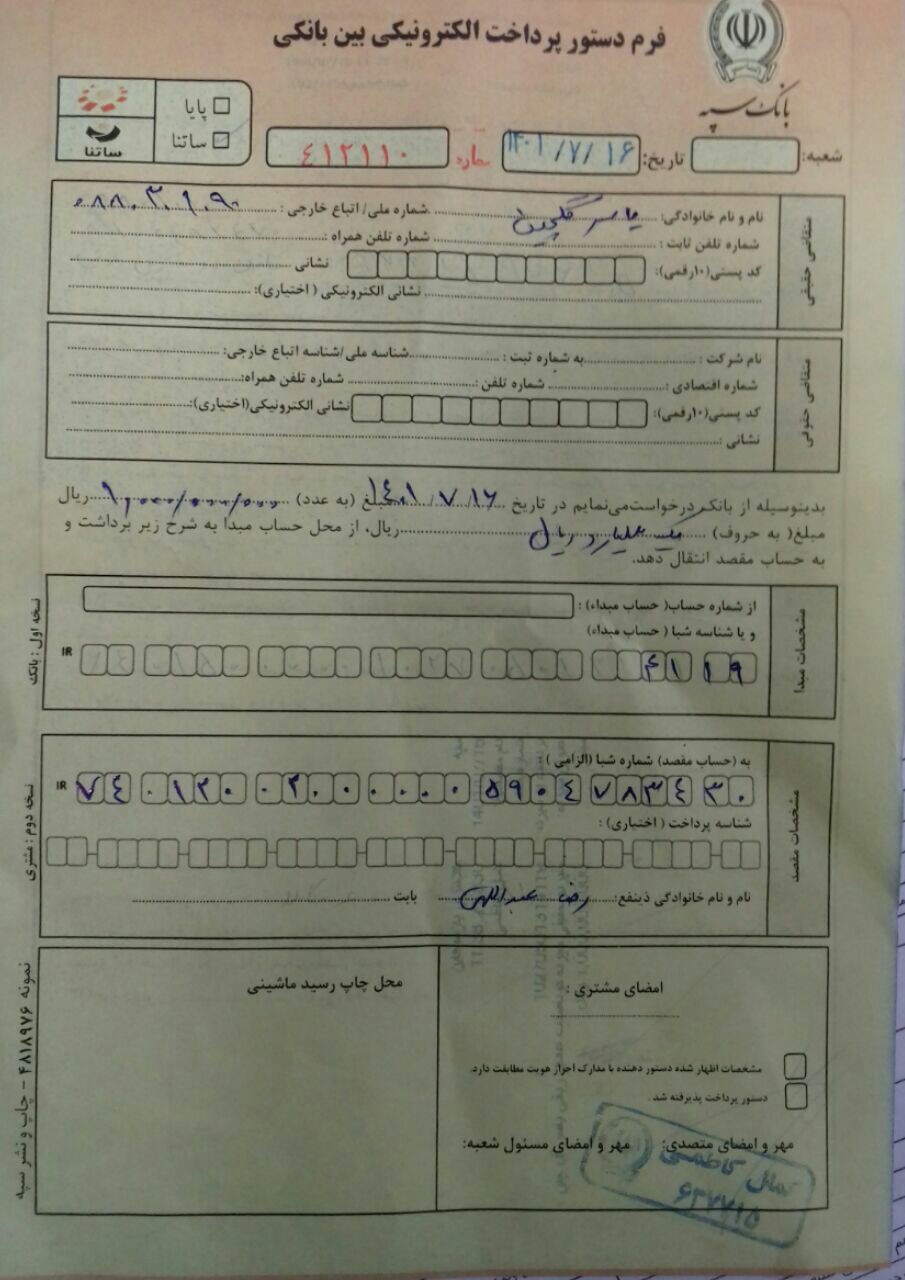 فرم دستور پرداخت الکترونیکی بین بانکی
بانک سپه
شعبه:
تاریخ: ۱۴۰۱/۷/۱۶
شماره ۴۱۲۱۱۰
پایا
ساتنا
ساتنا
متقاضی حقیقی
نام و نام خانوادگی: یاسر گلچین شماره ملی/ اتباع خارجی :
شماره تلفن ثابت : شماره تلفن همراه :
کد پستی(۱۰رقمی): نشانی
نشانی الکترونیکی ( اختیاری):
متقاضی حقوقی
نام شرکت : به شماره ثبت : شناسه ملی/شناسه اتباع خارجی:
شماره اقتصادی : شماره تلفن : شماره تلفن همراه:
کد پستی(۱۰رقمی): نشانی الکترونیکی(اختیاری):
نشانی :
بدینوسیله از بانک درخواست می‌نمایم در تاریخ ۱۴۰۱/۷/۱۶ مبلغ (به عدد) ۱,۰۰۰/۰۰۰/۰۰۰ ریال
مبلغ( به حروف) یک میلیارد ریال ریال. از محل حساب مبدا به شرح زیر برداشت و
به حساب مقصد انتقال دهد.
مشخصات مبدا
از شماره حساب( حساب مبداء) :
و یا شناسه شبا ( حساب مبداء)
IR
مشخصات مقصد
به (حساب مقصد) شماره شبا (الزامی ) :
IR ۷۴ ۰۱۲۰ ۰۲۰۰ ۰۰۰۰ ۵۹۰۴ ۷۸۳۴ ۳۰
شناسه پرداخت ( اختیاری) :
نام و نام خانوادگی ذینفع: رضا عبداللهی بابت
امضای مشتری :
محل چاپ رسید ماشینی
مشخصات اظهار شده دستور دهنده با مدارک احراز هویت مطابقت دارد.
دستور پرداخت پذیرفته شد .
مهر و امضای متصدی: مهر و امضای مسئول شعبه:
کاظمی
نسخه اول : بانک
نسخه دوم : مشتری
نمونه ۴۸۱۸۹۷۶ - چاپ و نشر سپه